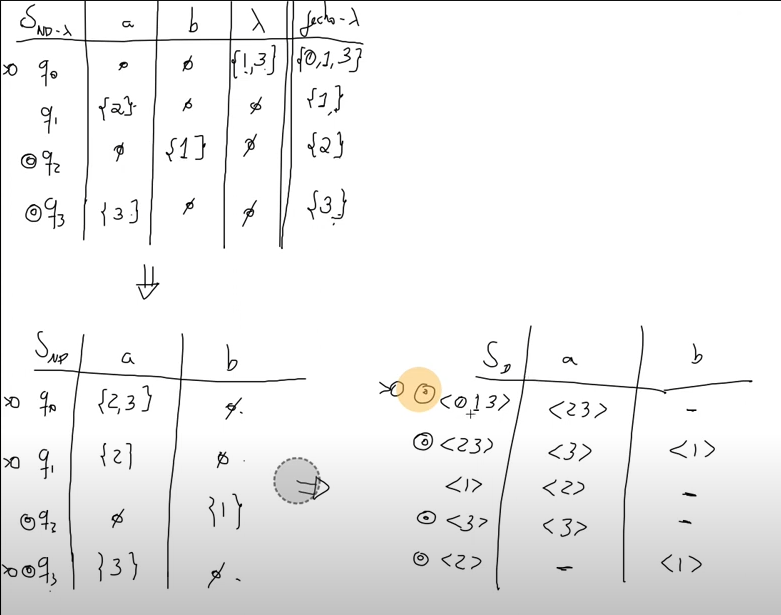 δND-λ a b λ fecho-λ
q0 ø ø {1,3} {0,1,3}
q1 {2} ø ø {1}
q2 ø {1} ø {2}
q3 {3} ø ø {3}
⇓
δND a b
q0 {2,3} ø
q1 {2} ø
q2 ø {1}
q3 {3} ø
⇒
δD a b
<013> <23> -
<23> <3> <1>
<1> <2> -
<3> <3> -
<2> - <1>